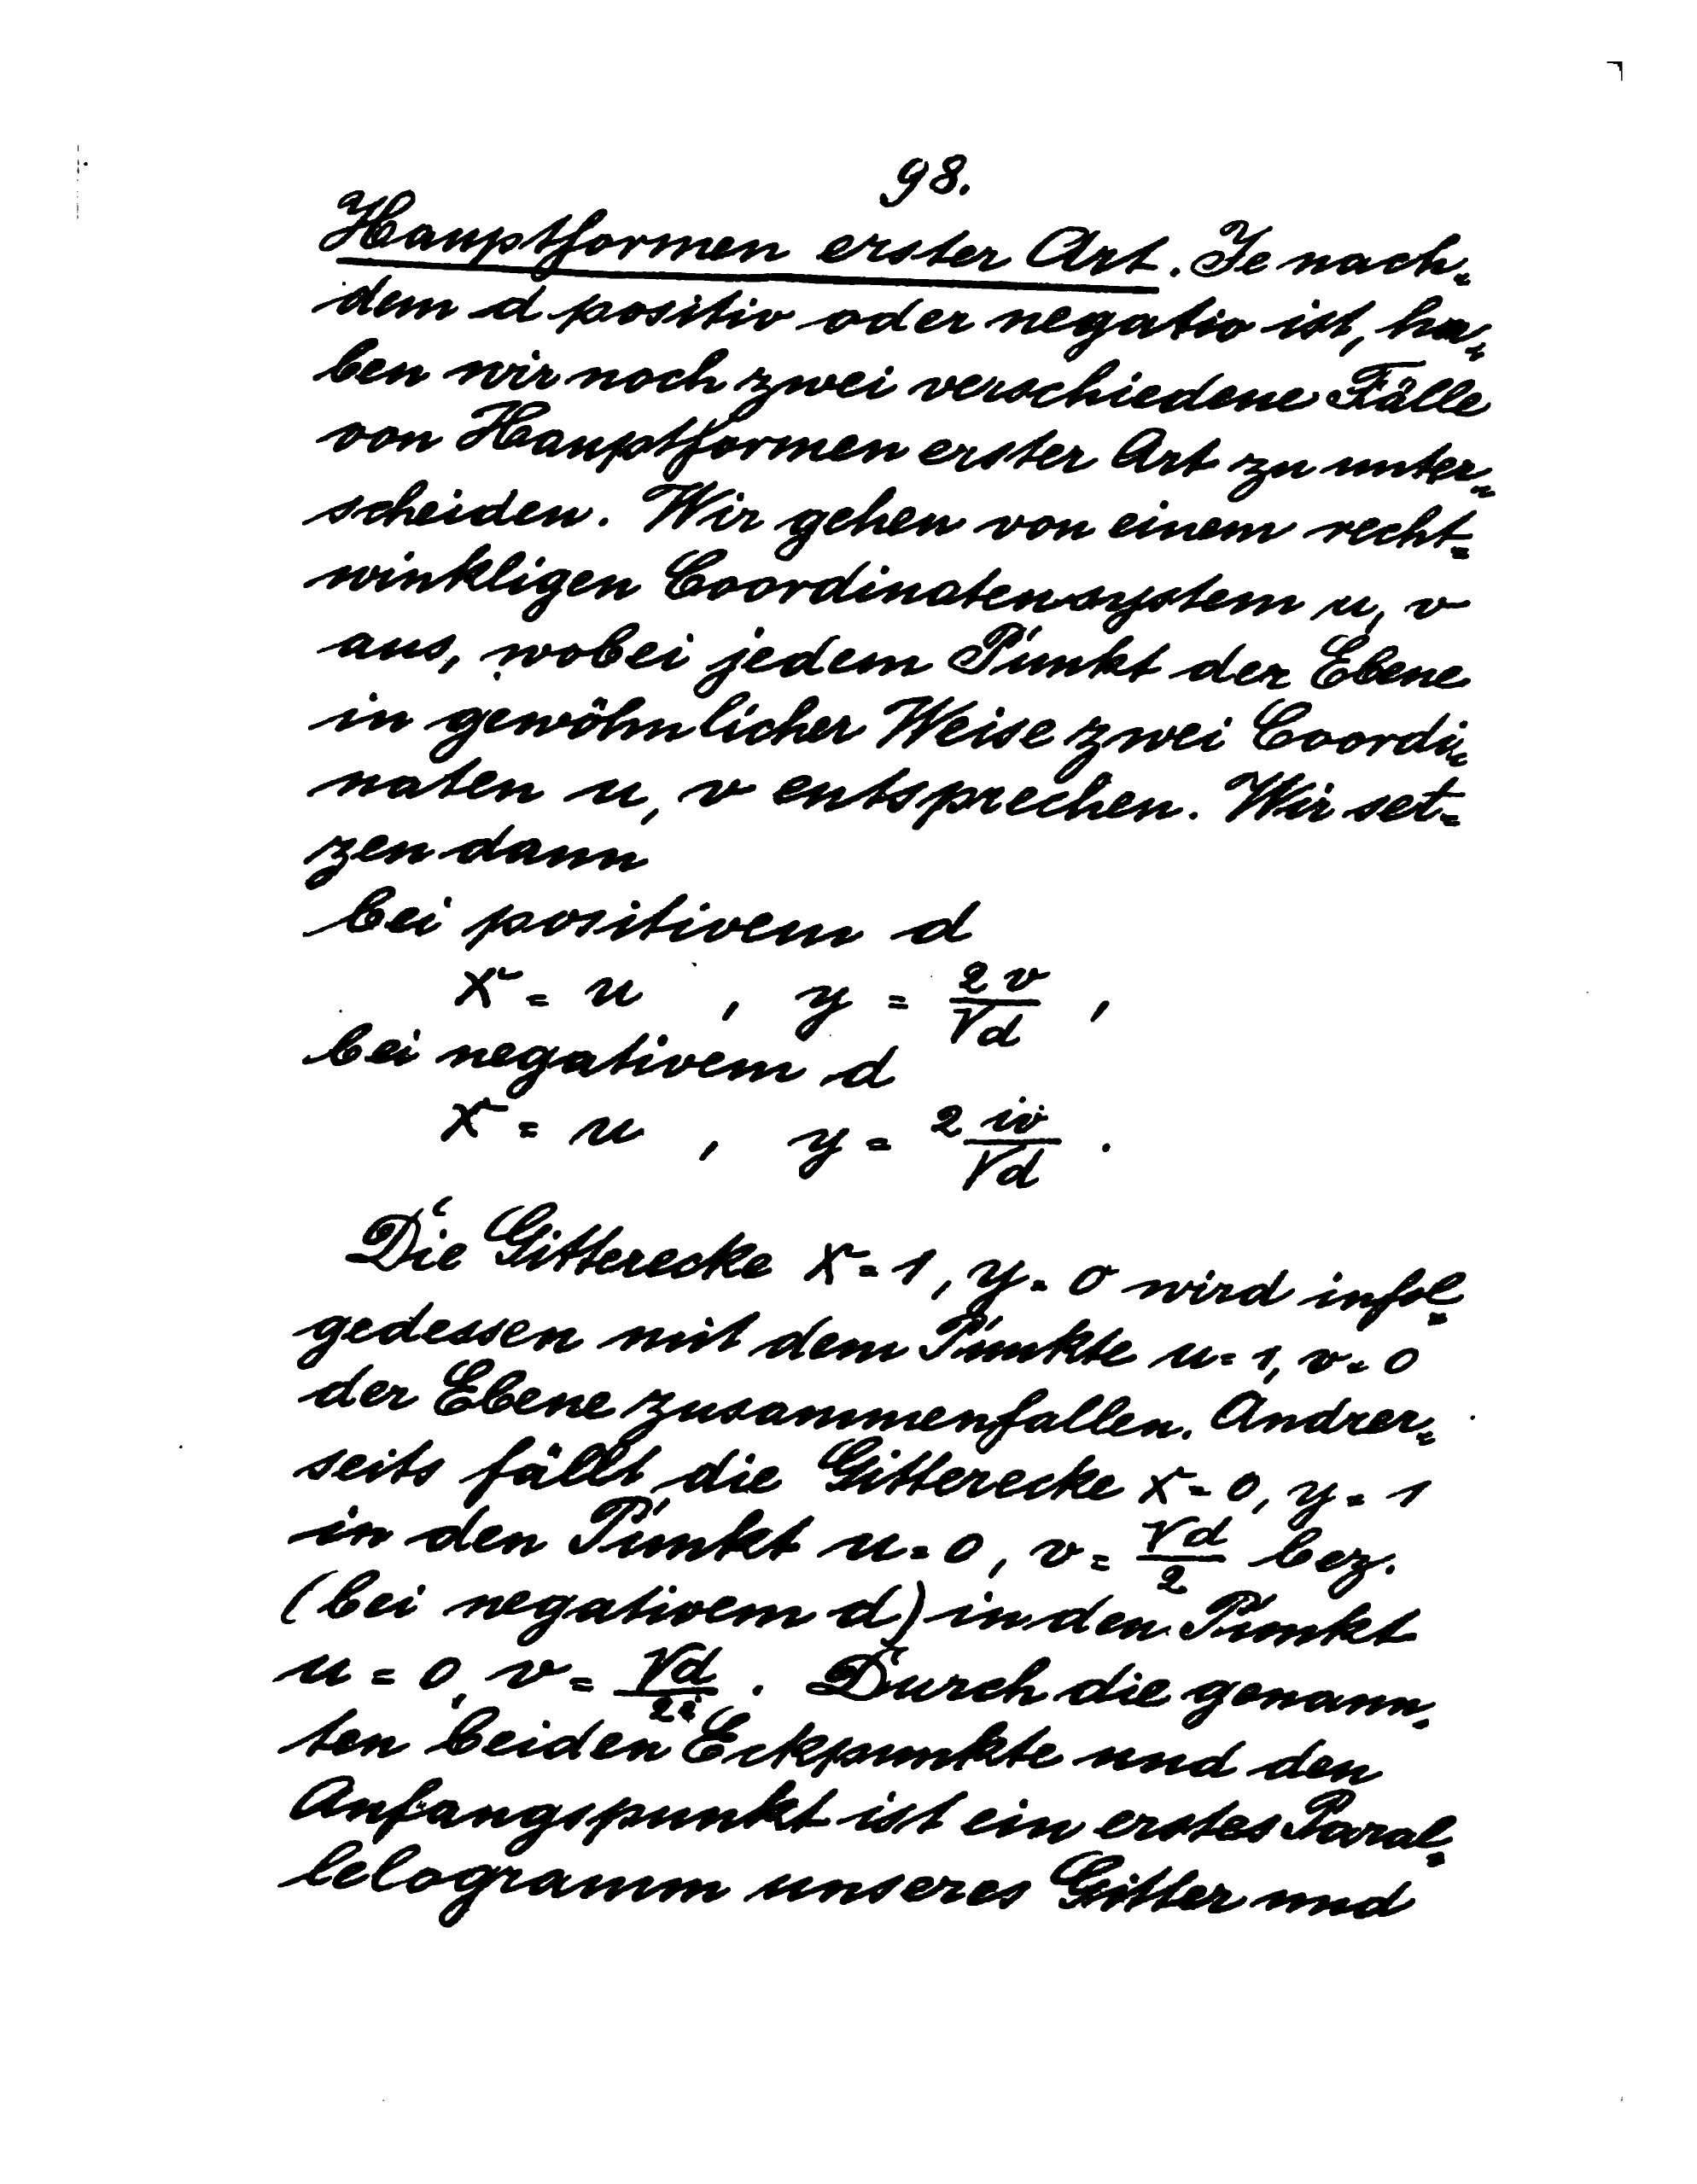 98.
Hauptformen erster Art. Je nach=
dem d positiv oder negativ ist, ha=
ben wir noch zwei verschiedene Fälle
von Hauptformen erster Art zu unter=
scheiden. Wir gehen von einem recht=
winkligen Coordinatensystem u, v
aus, wobei jedem Punkt der Ebene
in gewöhnlicher Weise zwei Coordi=
naten u, v entsprechen. Wir set=
zen dann
bei positivem d
x = u , y = 2v/√d ,
bei negativem d
x = u , y = 2 iv/√d .
Die Gitterecke x = 1, y = 0 wird infol=
gedessen mit dem Punkte u = 1, v = 0
der Ebene zusammenfallen. Andrer=
seits fällt die Gitterecke x = 0, y = 1
in den Punkt u = 0, v = √d/2 bez.
(bei negativem d) in den Punkt
u = 0, v = √d/2i . Durch die genann=
ten beiden Eckpunkte und den
Anfangspunkt ist ein erstes Paral=
lelogramm unseres Gitter und